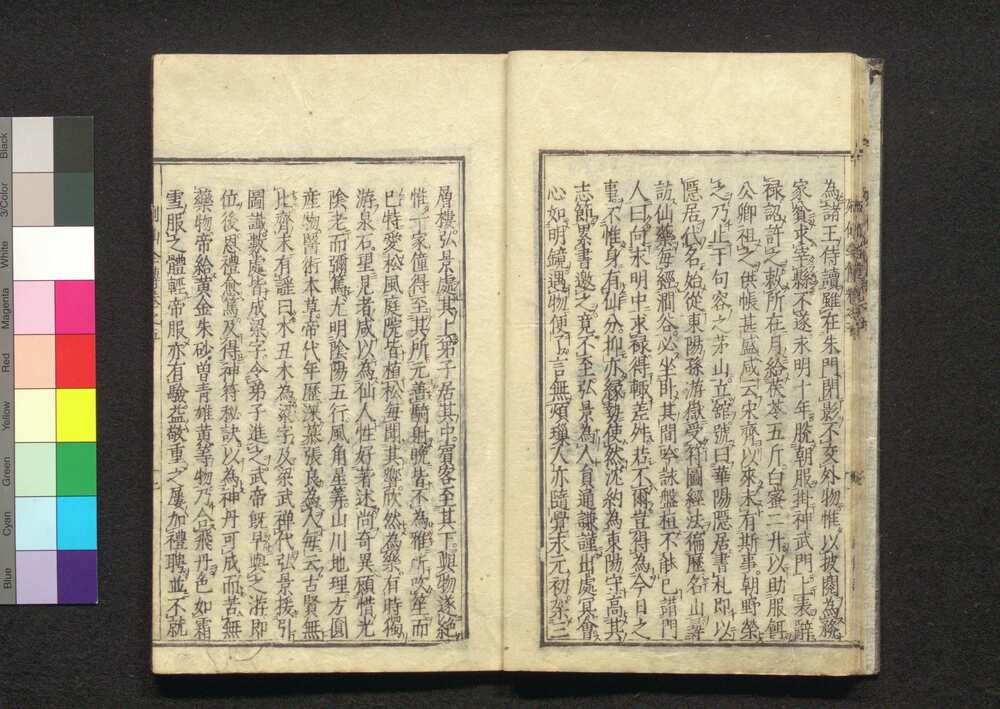 為諸王侍讀雖在朱門閉影不交外物惟以披閱為務
家貧求宰縣不遂永明十年脫朝服掛神武門上表辭
祿詔許之敕所在月給茯苓五斤白蜜二升以助服餌
公卿祖之供帳甚盛咸云宋齊以來未有斯事朝野榮
之乃止于句容之茅山立館號曰華陽隱居書札即以
隱居代名始從東陽孫游嶽受符圖經法徧歷名山尋
訪仙藥每經澗谷必坐臥其間吟詠盤桓不能已謂門
人曰向求明中求祿得輒差舛若不爾豈得為今日之
事不惟身有仙分抑亦緣勢使然沈約為東陽守高其
志節累書邀之竟不至弘景為人員通謙謹出處冥會
心如明鏡遇物便了言無煩璅人亦隨覺永元初架三
層樓弘景處其上弟子居其中賓客至其下與物遂絕
惟一家僮得至其所元善騎射晚皆不為雅所吹笙而
已特愛松風庭院皆植松每聞其響欣然為樂有時獨
游泉石望見者咸以為仙人性好著述尚奇異顧惜光
陰老而彌篤尤明陰陽五行風角星筭山川地理方圓
産物醫術本草帝代年歷深慕張良為人每云古賢無
比齊末有謡曰水丑木為梁字及梁武禅代弘景援引
圖讖數處皆成梁字令弟子進之武帝既早與之游即
位後恩禮愈篤及得神符秘訣以為神丹可成而苦無
藥物帝給黃金朱砂曾青雄黃等物乃合飛丹色如霜
雪服之體輕帝服亦有驗益敬重之屢加禮聘並不就
Black
3/Color
White
Magenta
Red
Yellow
Green
Cyan
Blue